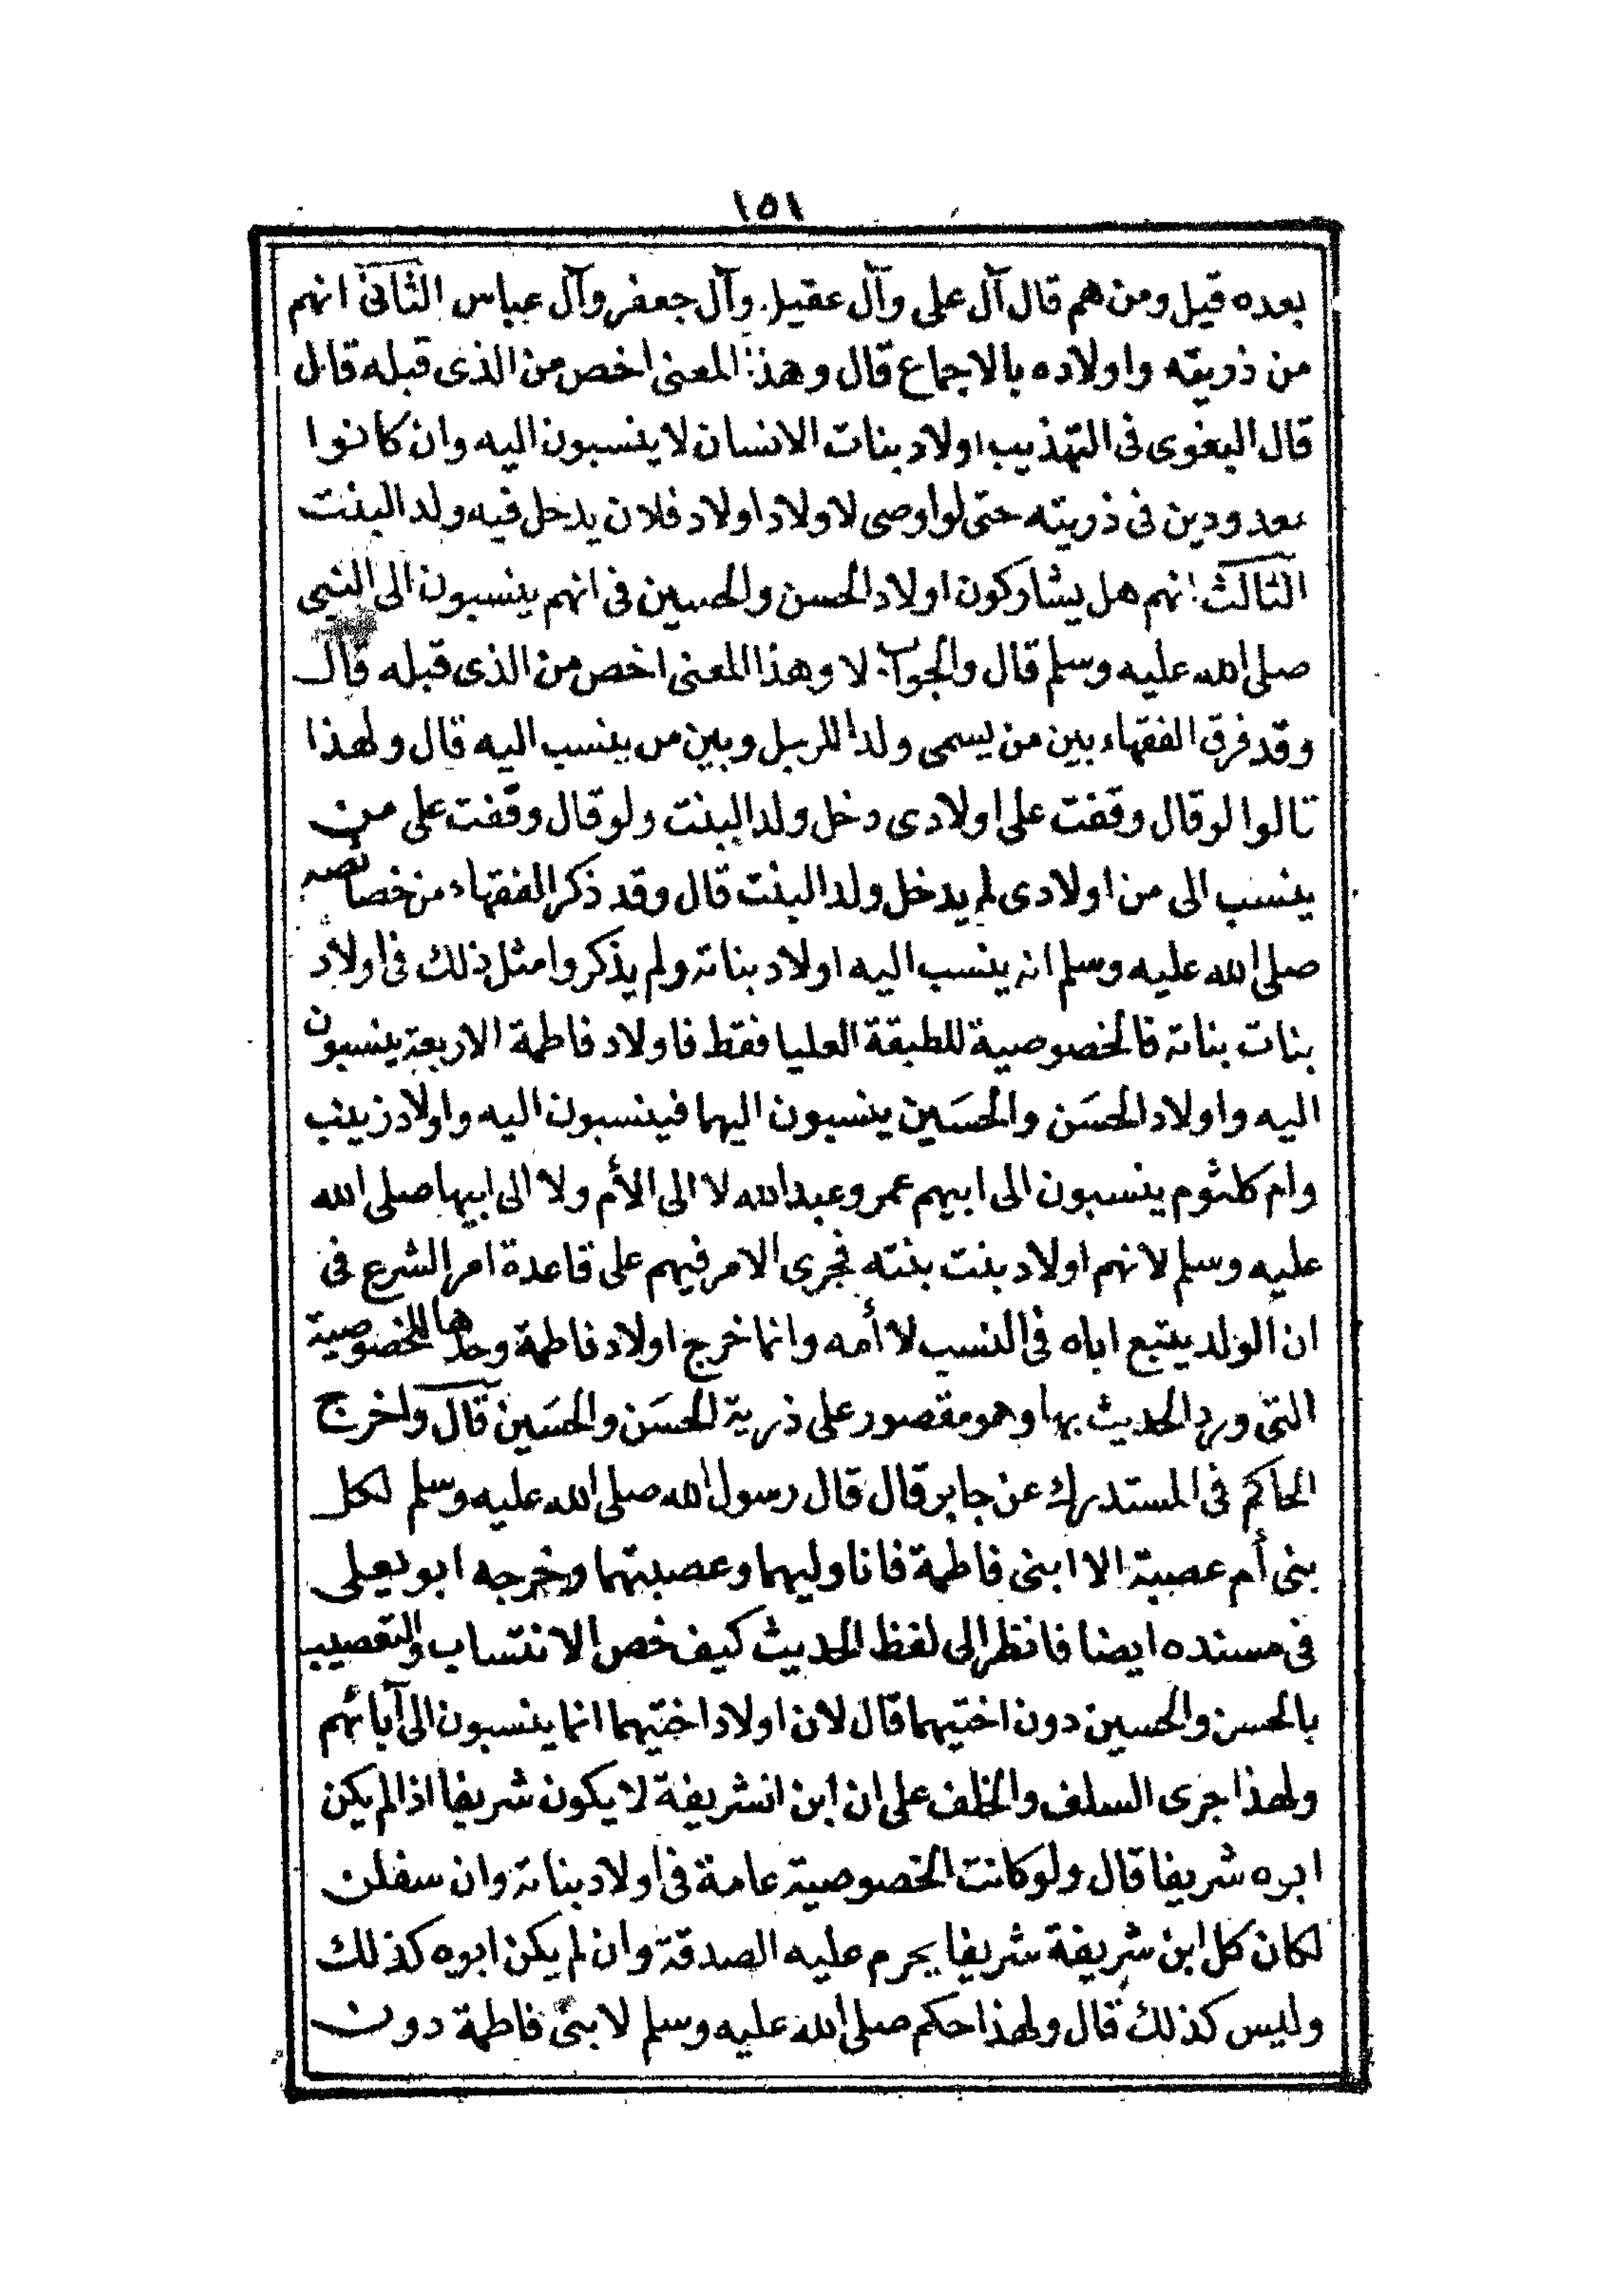 ١٥١
بعده قيل ومن هم قال آل على وآل عقيل وآل جعفر وآل عباس الثانى انهم
من ذريته واولاده بالاجماع قال وهذا المعنى اخص من الذى قبله قال
قال البغوى فى التهذيب اولاد بنات الانسان لا ينسبون اليه وان كانوا
معدودين فى ذريته حتى لو اوصى لاولاد اولاد فلان يدخل فيه ولد البنت
الثالث انهم هل يشاركون اولاد الحسن والحسين فى انهم ينسبون الى النبى
صلى الله عليه وسلم قال والجواب لا وهذا المعنى اخص من الذى قبله قال
وقد فرق الفقهاء بين من يسمى ولدا للرجل وبين من ينسب اليه قال ولهذا
قالوا لو قال وقفت على اولادى دخل ولد البنت ولو قال وقفت على من
ينسب الى من اولادى لم يدخل ولد البنت قال وقد ذكر الفقهاء من خصائصه
صلى الله عليه وسلم انه ينسب اليه اولاد بناته ولم يذكروا مثل ذلك فى اولاد
بنات بناته فالخصوصية للطبقة العليا فقط فاولاد فاطمة الاربعة ينسبون
اليه واولاد الحسَن والحسَين ينسبون اليهما فينسبون اليه واولاد زينب
وام كلثوم ينسبون الى ابيهم عمر وعبدالله لا الى الأم ولا الى ابيها صلى الله
عليه وسلم لانهم اولاد بنت بنته فجرى الامر فيهم على قاعدة امر الشرع فى
ان الولد يتبع اباه فى النسب لا أمه وانما خرج اولاد فاطمة وحدها للخصوصية
التى ورد الحديث بها وهو مقصور على ذرية الحسَن والحسَين قال واخرج
الحاكم فى المستدرك عن جابر قال قال رسول الله صلى الله عليه وسلم لكل
بنى أم عصبة الا ابنى فاطمة فانا وليهما وعصبتهما وخرجه ابو يعلى
فى مسنده ايضا فانظر الى لفظ الحديث كيف خص الانتساب والتعصيب
بالحسن والحسين دون اختيهما قال لان اولاد اختيهما انما ينسبون الى آبائهم
ولهذا جرى السلف والخلف على ان ابن الشريفة لا يكون شريفا اذا لم يكن
ابوه شريفا قال ولو كانت الخصوصية عامة فى اولاد بناته وان سفلن
لكان كل ابن شريفة شريفا يحرم عليه الصدقة وان لم يكن ابوه كذلك
وليس كذلك قال ولهذا حكم صلى الله عليه وسلم لابنى فاطمة دون